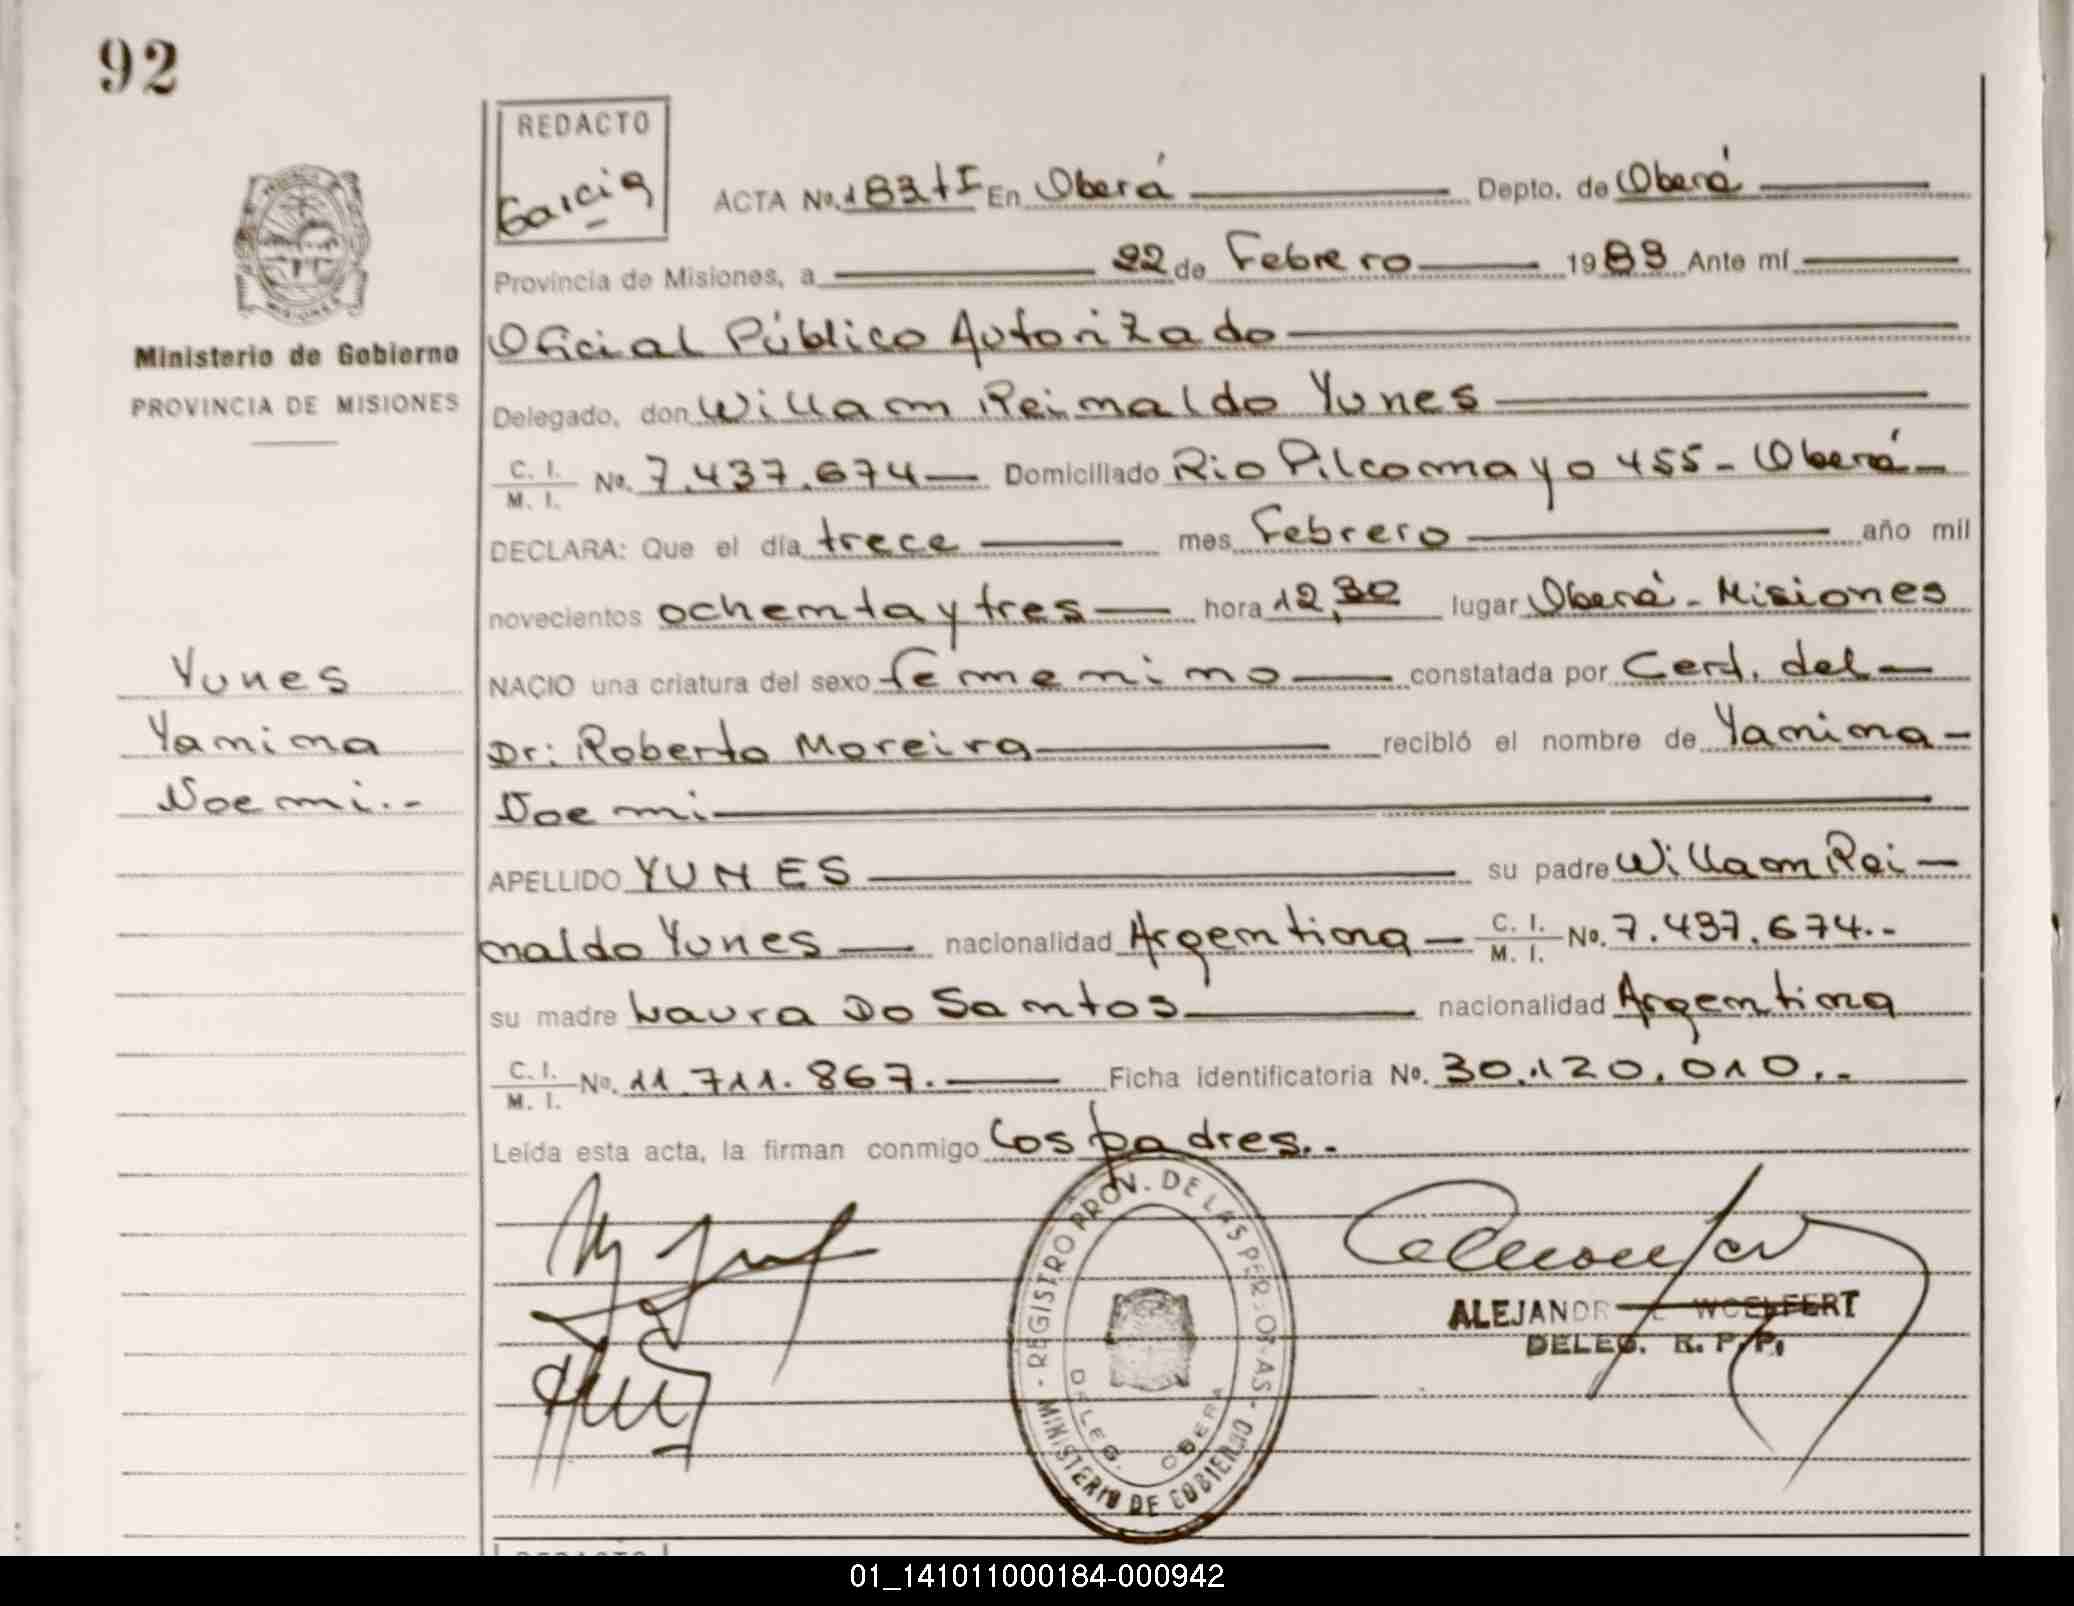 92
REDACTO
Garcia
ACTA No. 183 tI En Oberá Depto. de Oberá
Provincia de Misiones, a 22 de Febrero 1983 Ante mí
Oficial Público Autorizado
Ministerio de Gobierno
PROVINCIA DE MISIONES
Delegado, don Willam Reinaldo Yunes
C. I.
M. I. No. 7.437.674 Domiciliado Rio Pilcomayo 455 - Oberá
DECLARA: Que el día trece mes Febrero año mil
novecientos ochenta y tres hora 12,30 lugar Oberá - Misiones
Yunes
Yanina
Noemi.-
NACIO una criatura del sexo femenino constatada por Cert. del
Dr: Roberto Moreira recibió el nombre de Yanina
Noemi
APELLIDO YUNES su padre Willam Rei-
naldo Yunes nacionalidad Argentina C. I.
M. I. No. 7.437.674.-
su madre Laura Do Santos nacionalidad Argentina
C. I.
M. I. No. 11.711.867. Ficha identificatoria No. 30.120.010.-
Leída esta acta, la firman conmigo los padres.-
REGISTRO PROV. DE LAS PERSONAS
MINISTERIO DE GOBIERNO
DELEG. OBERA
ALEJANDR WOELFERT
DELEG. R. P. P.
REDACTO
01_141011000184-000942